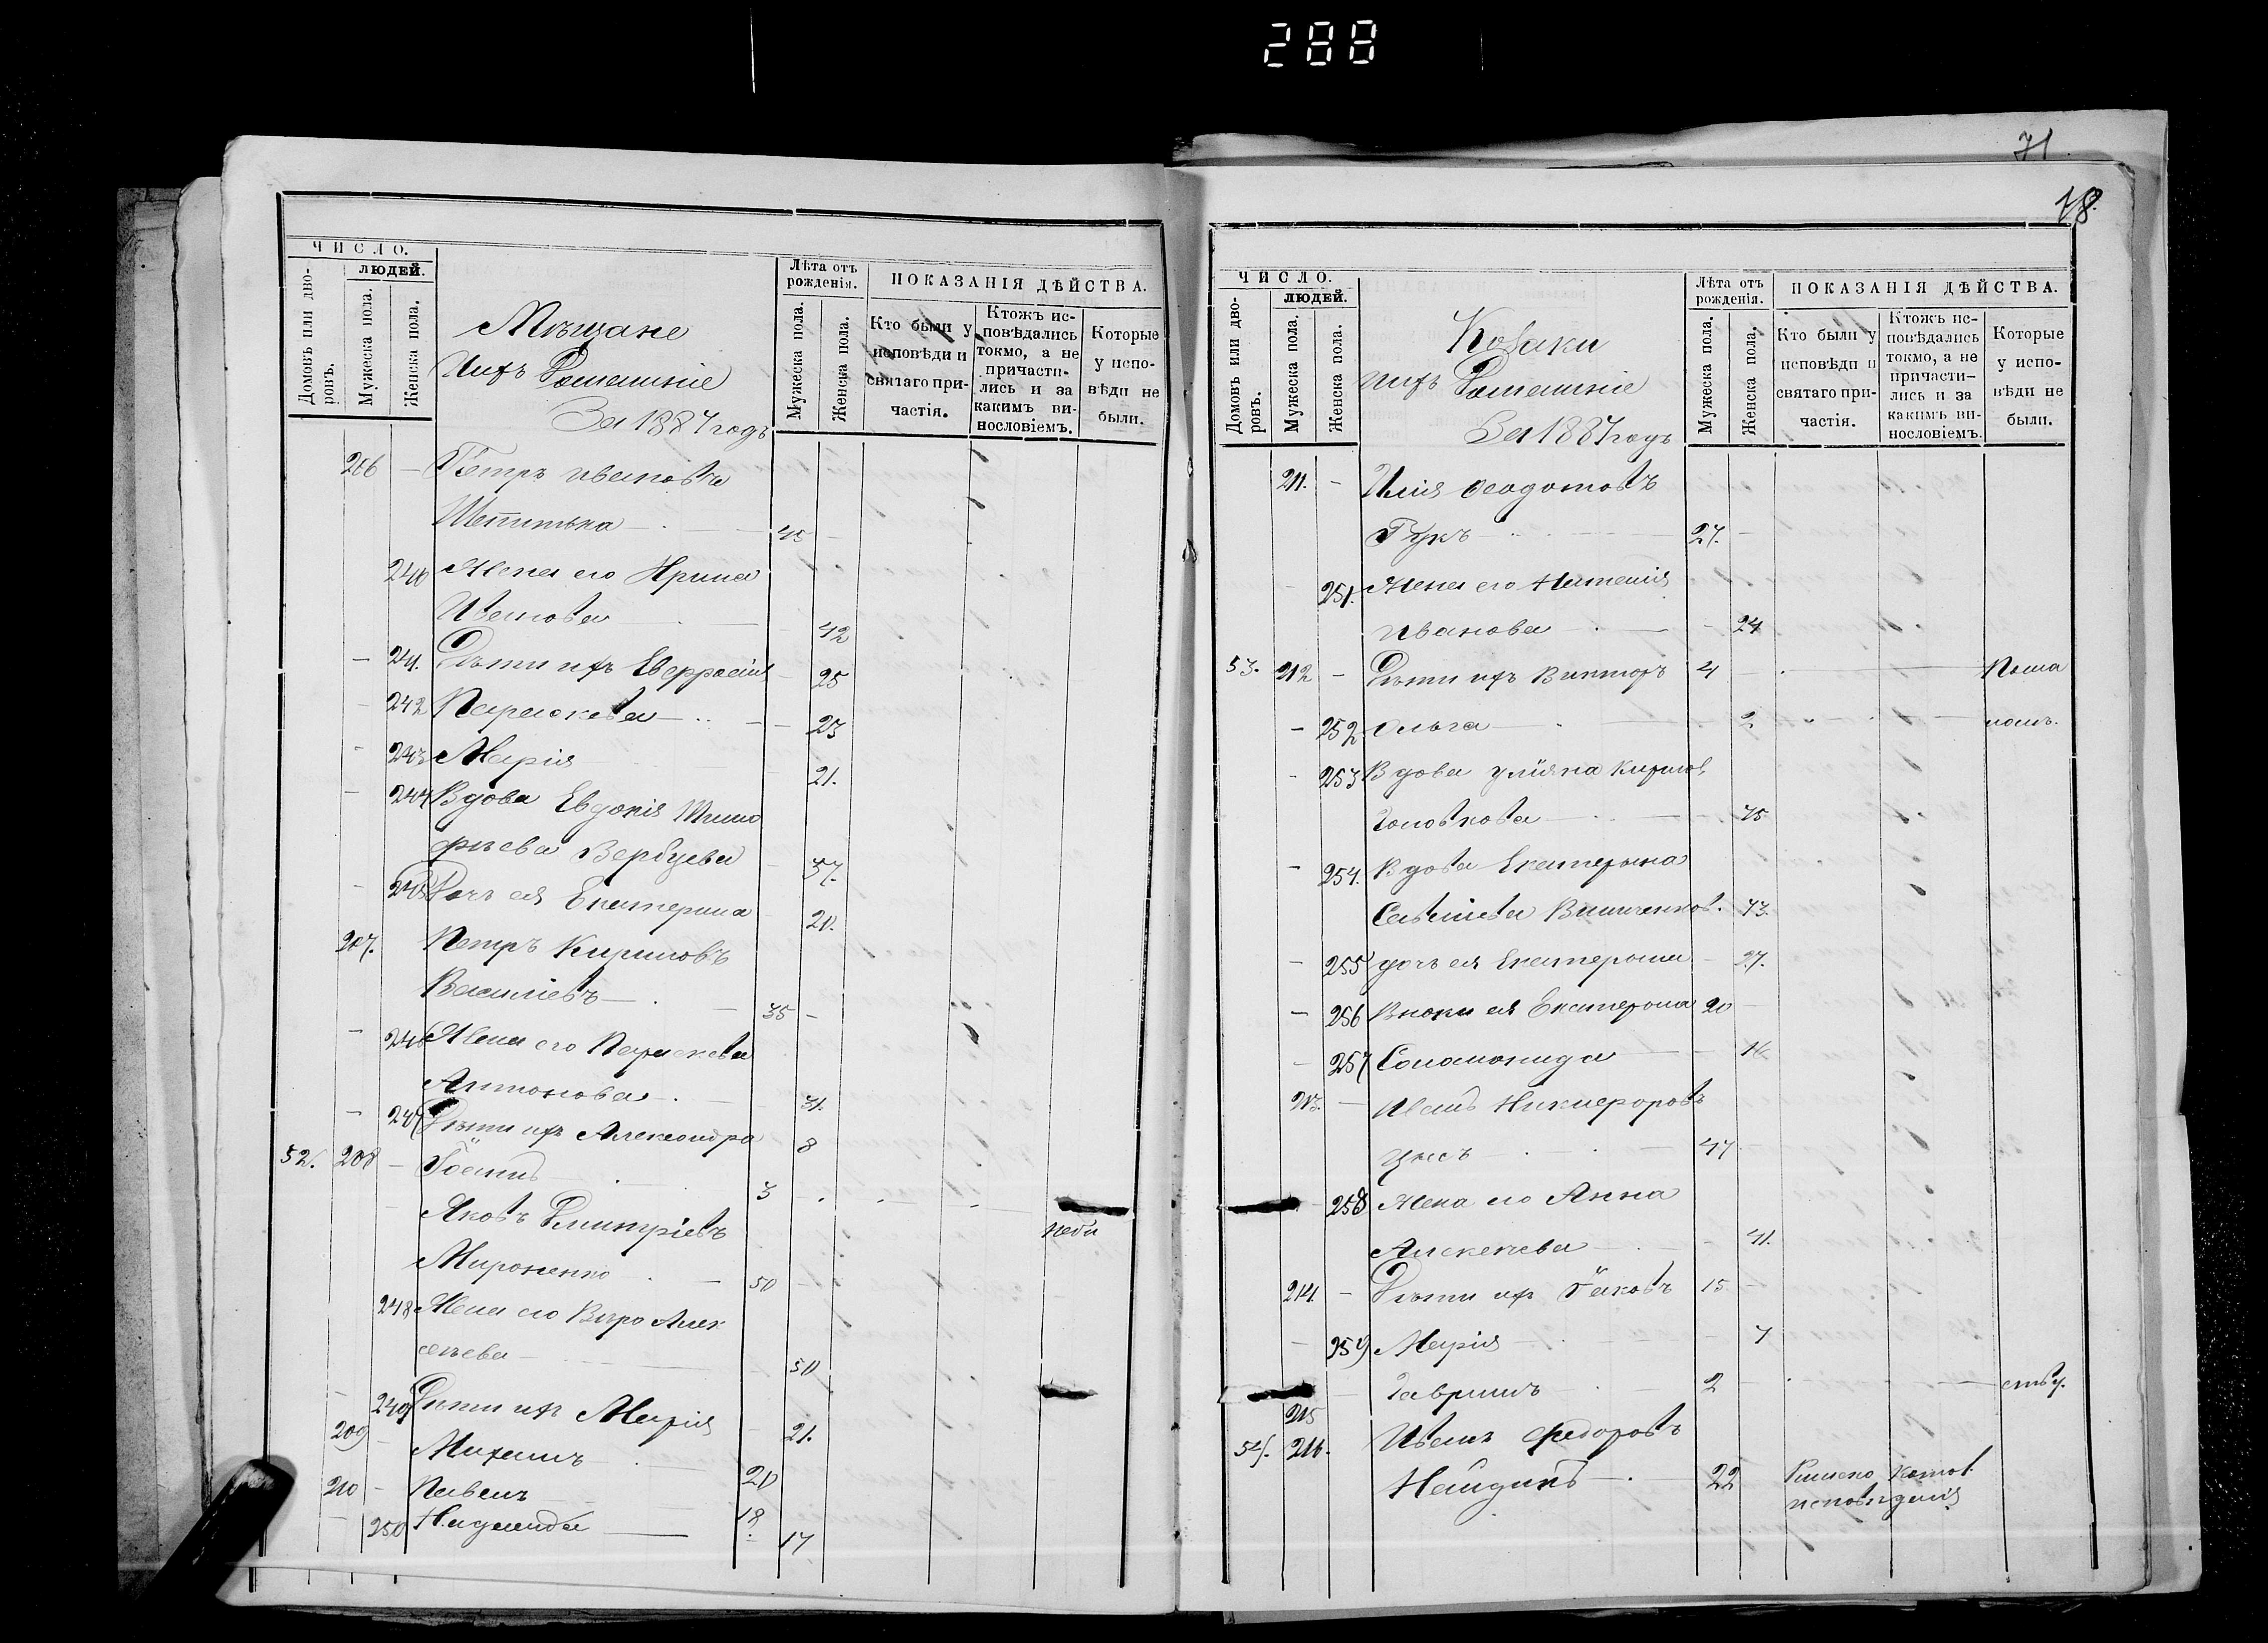 288
71
18.
ЧИСЛО.
Домовъ или дворовъ.
людей.
Мужеска пола.
Женска пола.
Мѣщане
Ихъ Домашніе
За 1887 годъ
Лѣта отъ рожденія.
Мужеска пола.
Женска пола.
ПОКАЗАНІЯ ДѢЙСТВА.
Кто были у исповѣди и святаго причастія.
Ктожъ исповѣдались токмо, а не причастились и за какимъ винословіемъ.
Которые у исповѣди не были.
206 — Петръ Ивановъ
45 —
240 Жена его Ирина
Иванова — 42
— 241. Дѣти ихъ Евфросинія — 25
— 242 Параскева — 23
— 243 Марія 21.
— 244 Вдова Евдокія Тимо
фѣева 37.
— 245 Дочь ея Екатерина 20.
207. Петръ Кириловъ
Василіевъ — 35 —
— 246 Жена его Параскева
Антонова — 31.
— 247 Дѣти ихъ Александра 8
52. 208 — Іоаннъ 3
Яковъ Дмитріевъ
Мироненко — 50 —
248 Жена его Вѣра Алек
сѣева — 50
— 249 Дѣти ихъ Марія — 21.
209 — Михаилъ — 20
210 — Павелъ 18
— 250 Надежда — 17
ЧИСЛО.
Домовъ или дворовъ.
людей.
Мужеска пола.
Женска пола.
Козаки
ихъ Домашніе
За 1887 годъ
Лѣта отъ рожденія.
Мужеска пола.
Женска пола.
ПОКАЗАНІЯ ДѢЙСТВА.
Кто были у исповѣди и святаго причастія.
Ктожъ исповѣдались токмо, а не причастились и за какимъ винословіемъ.
Которые у исповѣди не были.
211. — Илія Феодотовъ
Гукъ — 27. —
251. Жена его Наталія
Иванова — 24
53. 212 — Дѣти ихъ Викторъ 4 —
— 252 Ольга — 2
— 253 Вдова Уліяна Кирилов.
75
— 254. Вдова Екатерина
73.
— 255 дочь ея Екатерина — 27.
— 256 Вноки ея Екатерина 20 —
— 257 Соломонида — 16
213. — Иванъ Никифоровъ
47
— 258 Жена его Анна
Алексеева — 41.
214. — Дѣти ихъ Іаковъ 15 —
— 259 Марія — 7
215 Гавриилъ 2 —
54. 216. Иванъ Федоровъ
Найдинъ — 22 Римско Катол.
исповѣданія